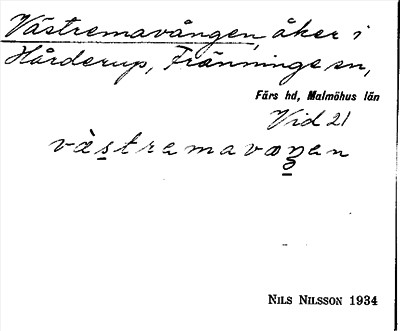 Västremavången, åker i
Hårderup, Fränninge sn,
Färs hd, Malmöhus län
Vid 21
västremavaŋen
NILS NILSSON 1934